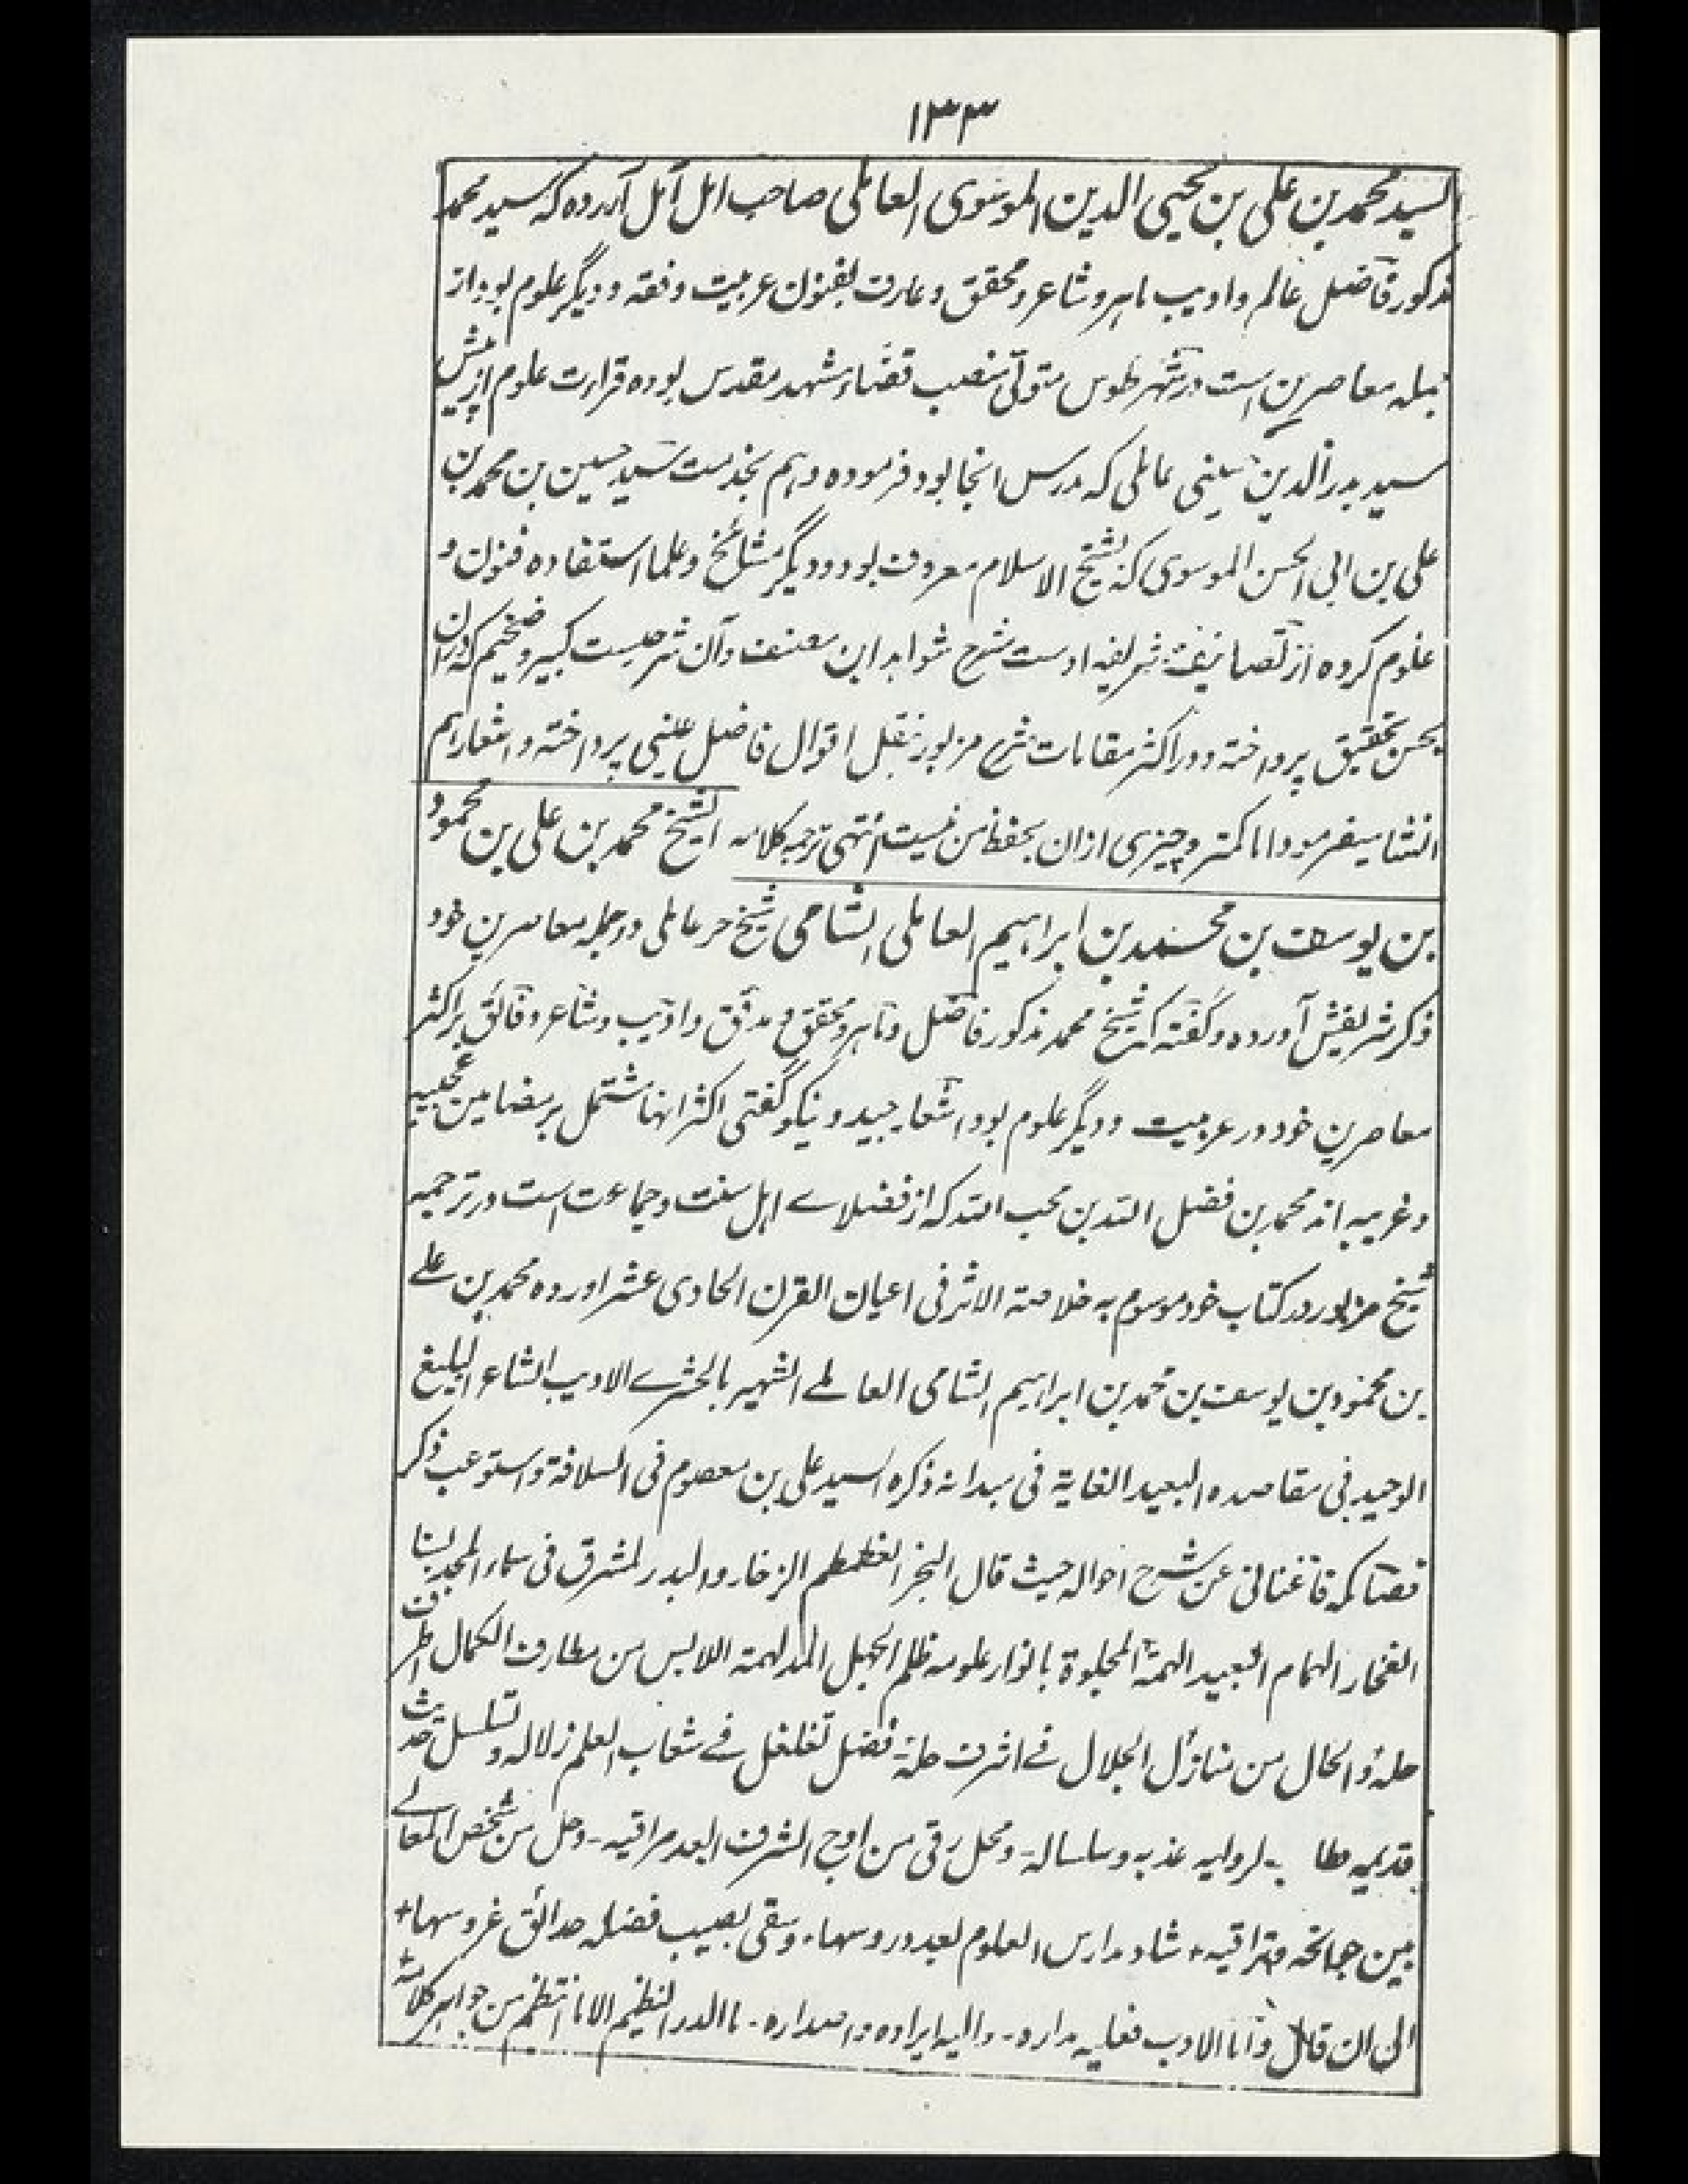 ۱۳۳
السید محمد بن علی بن محیی الدین الموسوی العاملی صاحب امل آمل آورده که سید محمد
مذکور فاضل عالم و ادیب ماهر و شاعر و محقق و عارف بفنون عربیت و فقه و دیگر علوم بود از
جمله معاصرین است در شهر طوس متولی منصب قضاء مشهد مقدس بوده قراءت علوم از پیش
سید بدر الدین حسینی عاملی که مدرس انجا بود فرموده و هم بخدمت سید حسین بن محمد بن
علی بن ابی الحسن الموسوی که بشیخ الاسلام معروف بود و دیگر مشائخ و علما استفاده فنون و
علوم کرده از تصانیف شریفه اوست شرح شواهد ابن مصنف و آن شرحیست کبیر و ضخیم که دران
بحسن تحقیق پرداخته و در اکثر مقامات شرح مزبور بنقل اقوال فاضل عینی پرداخته و اشعار هم
انشا میفرمود اما کمتر و چیزی ازان بحفظ من نیست انتهی ترجمة کلامه الشیخ محمد بن علی بن محمود
بن یوسف بن محمد بن ابراهیم العاملی الشامی شیخ حر عاملی در جمله معاصرین خود
ذکر شریفش آورده و گفته که شیخ محمد مذکور فاضل و ماهر و محقق و مدقق و ادیب و شاعر و فائق بر اکثر
معاصرین خود در عربیت و دیگر علوم بود و اشعار جید و نیکو گفتی اکثر انها مشتمل بر مضامین عجیبه
و غریبه اند محمد بن فضل الله بن محب الله که از فضلاے اهل سنت و جماعت است در ترجمه
شیخ مزبور در کتاب خود موسوم به خلاصة الاثر فی اعیان القرن الحادی عشر اورده محمد بن علے
بن محمود بن یوسف بن محمد بن ابراهیم الشامی العاملے الشهیر بالحشرے الادیب الشاعر البلیغ
الوحید فی مقاصده البعید الغایة فی میدانه ذکره السید علی بن معصوم فی السلافة و استوعب ذکر
فضائله فاغنانی عن شرح احواله حیث قال البحر الغطمطم الزخار و البدر المشرق فی سماء المجد بسناء
الفخار الهمام البعید الهمة المجلوة بانوار علومه ظلم الجهل المدلهمة اللابس من مطارف الکمال اظرف
حلة و الحال من منازل الجلال فے اشرف حلة فضل تغلغل فے شعاب العلم زلاله و تسلسل حدیث
قدیمه فطاب لراویه عذبه و سلساله - و محل رقی من اوج الشرف ابعد مراقیه - و حل من شخص المعالے
بین جوانحه و تراقیه + شاد مدارس العلوم بعد دروسها - و سقی بصیب فضله حدائق غروسها +
الی ان قال و اما الادب فعلیه مداره - و الیه ایراده و اصداره - ما الدر النظیم الا ما انتظم من جواهر کلامه +